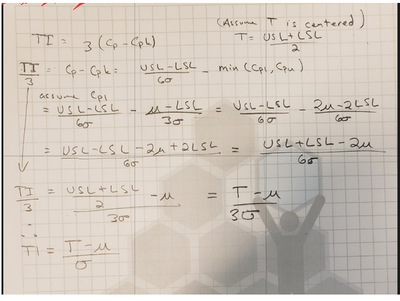 (Assume T is centered)
TI = 3 (Cp - Cpk)
T = (USL + LSL)/2
TI/3 = Cp - Cpk = (USL - LSL)/6σ - min (Cpl, Cpu)
assume Cpl
= (USL - LSL)/6σ - (μ - LSL)/3σ = (USL - LSL)/6σ - (2μ - 2LSL)/6σ
= (USL - LSL - 2μ + 2LSL)/6σ = (USL + LSL - 2μ)/6σ
TI/3 = ((USL + LSL)/2 - μ)/3σ = (T - μ)/3σ
∴ TI = (T - μ)/σ